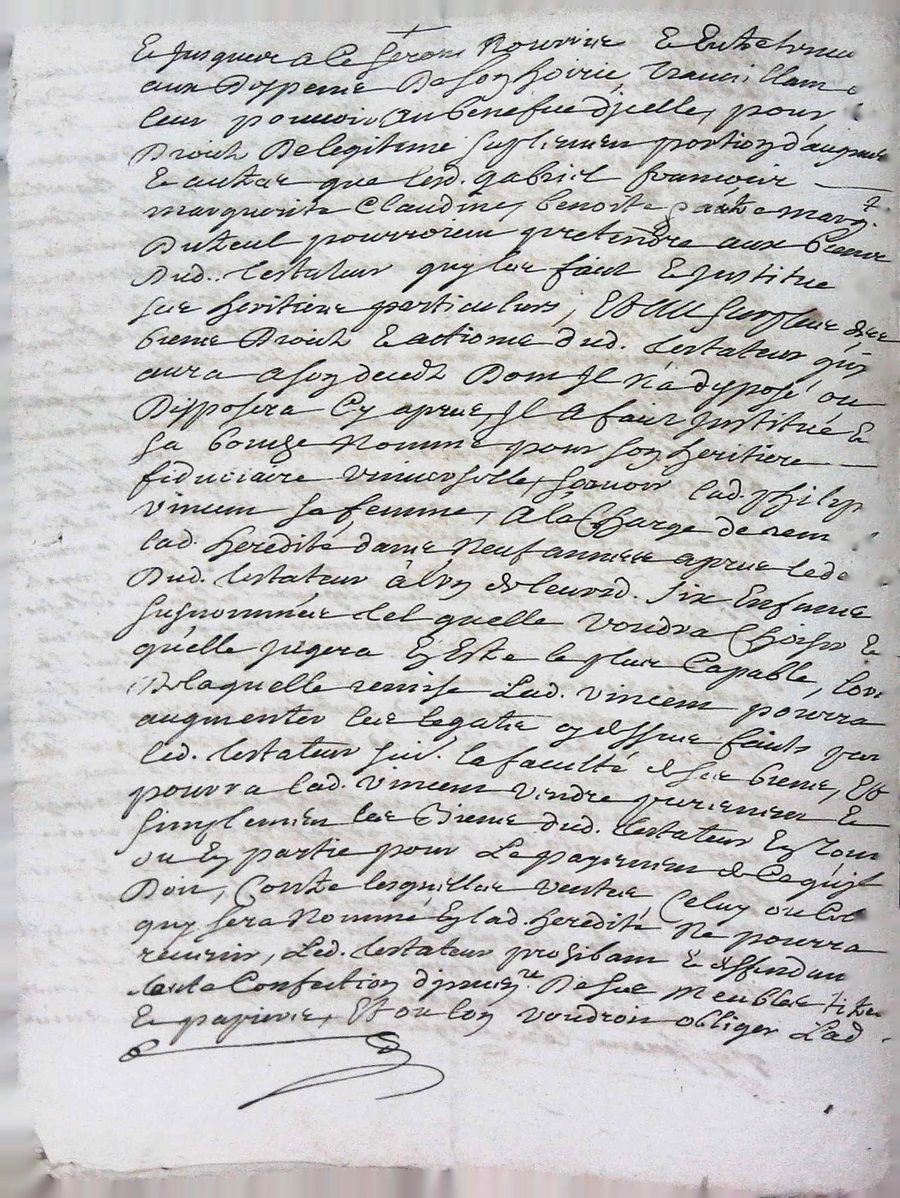 Et jusques a ce seront Nourris Et Entretenus
aux Despens De son hoirie, travaillant
leur pouvoir au benefice d'jcelle, pour
Droict De legitime suplement portion d'augment
Et autres que lesd. gabriel françois
marguerite Claudine, benoite et autre marg.te
Duteul pourroient pretendre aux biens
Dud. testateur quy les fait Et jnstitue
ses heritiers particuliers, Et au surplus des
biens Droicts Et actions dud. testateur quy
aura a son deceds Dont Jl n'a dysposé ou
Disposera Cy apres, Jl a fait jnstitué Et
sa bouche Nommé pour son heritiere
fiduciaire universelle, sçavoir lad. philip
vincent sa femme, a la Charge de rem
lad. heredité dans Neuf années apres led
Dud. testateur à l'un de leursd. six Enfans
susnommés tel quelle voudra Choisir Et
qu'elle jugera En Estre le plus Capable, lors
De laquelle remise Lad. vincent pourra
augmenter les legats cy dessus faits par
led. testateur suiv. la faculté de ses biens, Et
pourra lad. vincent vendre purement Et
simplement les Biens dud. testateur En tout
ou En partie pour Le payement de Ce qu'jl
Doit, Contre lesquelles ventes Celuy ou Cel
quy sera Nommé En lad. heredité Ne pourra
revenir, Led. testateur prohibant Et deffendant
toute Confection d'jnven.re De ses Meubles titres
Et papiers, Et ou lon voudroit obliger Lad